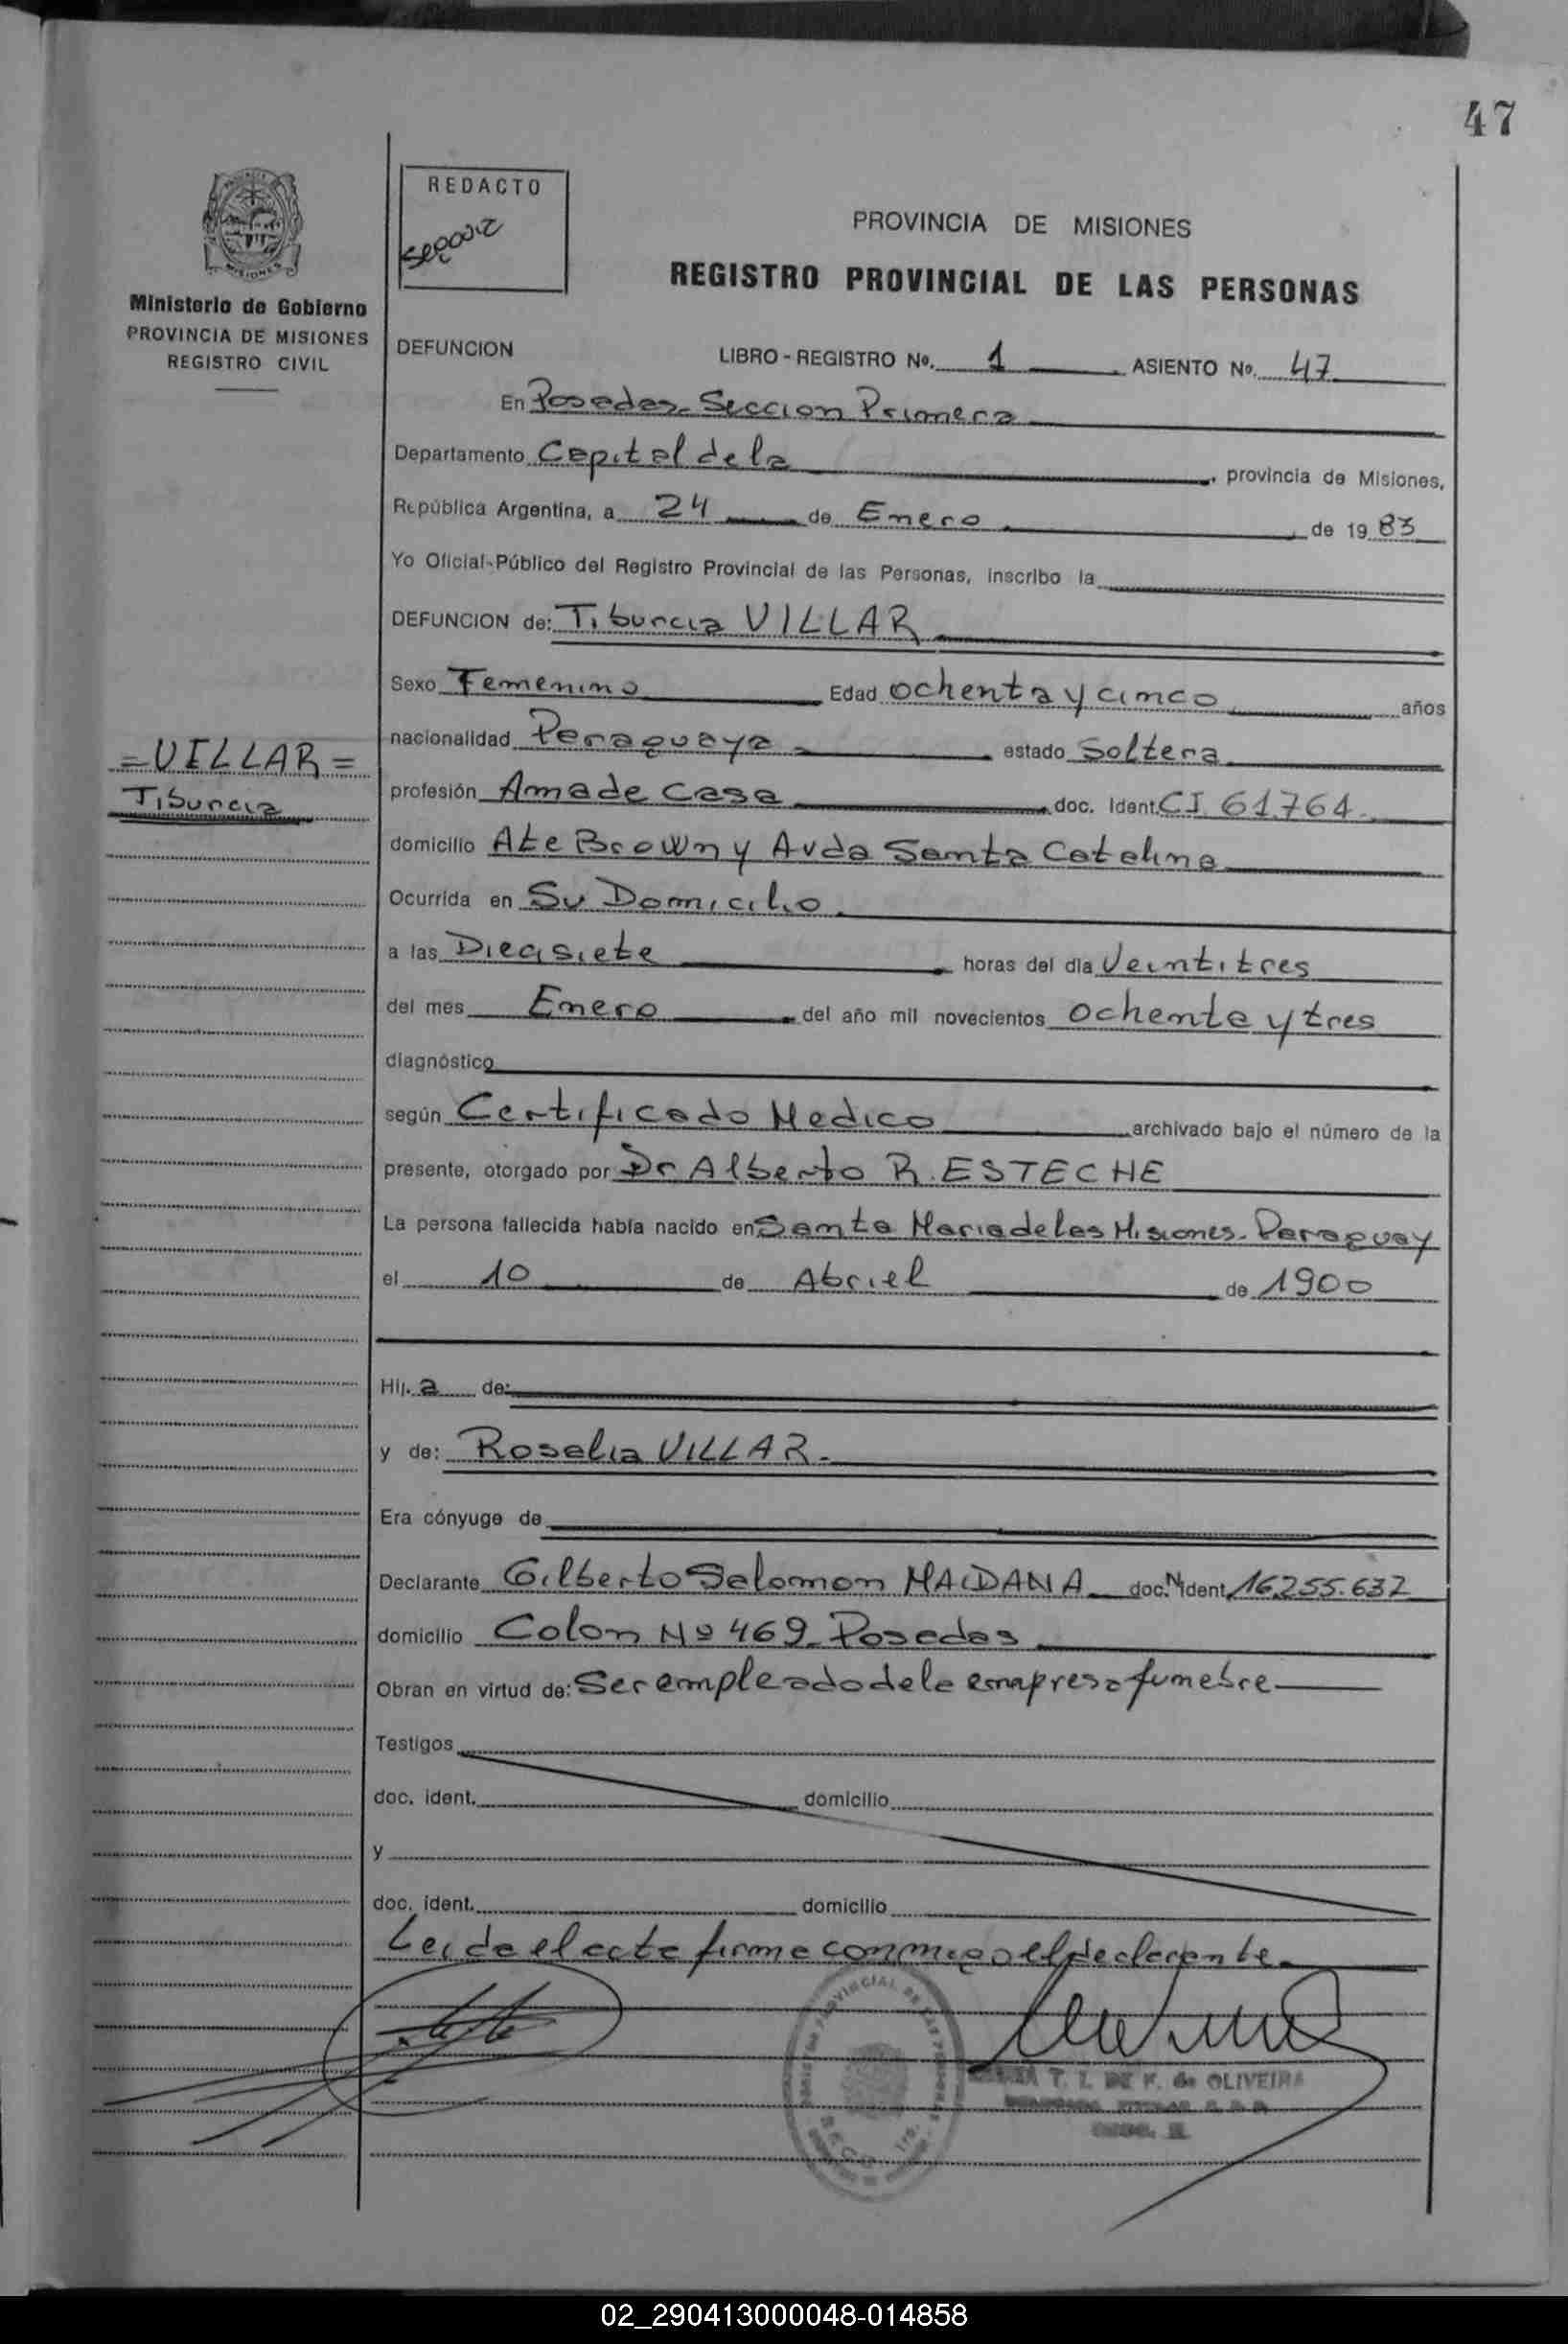 47
REDACTO
PROVINCIA DE MISIONES
REGISTRO PROVINCIAL DE LAS PERSONAS
MISIONES
Ministerio de Gobierno
PROVINCIA DE MISIONES
REGISTRO CIVIL
DEFUNCION LIBRO - REGISTRO Nº. 1 ASIENTO Nº. 47
En Posadas- Seccion Primera
Departamento Capital de la , provincia de Misiones,
República Argentina, a 24 de Enero de 19 83
Yo Oficial-Público del Registro Provincial de las Personas, inscribo la
DEFUNCION de: Tiburcia VILLAR
Sexo Femenino Edad ochenta y cinco años
nacionalidad Paraguaya estado Soltera
= VILLAR =
Tiburcia
profesión Ama de Casa doc. Ident. CI 61764.
domicilio Ate Brown y Avda Santa Catalina
Ocurrida en Su Domicilio
a las Diecisiete horas del día Veintitres
del mes Enero del año mil novecientos ochenta y tres
diagnóstico
según Certificado Medico archivado bajo el número de la
presente, otorgado por Dr Alberto R. ESTECHE
La persona fallecida había nacido en Santa Maria de las Misiones- Paraguay
el 10 de Abriel de 1900
Hij. a de:
y de: Roselia VILLAR.
Era cónyuge de
Declarante Gilberto Salomon MAIDANA doc. Nident. 16.255.637
domicilio Colon Nº 469- Posadas
Obran en virtud de: Ser empleado de la empresa funebre
Testigos
doc. ident. domicilio
y
doc. ident. domicilio
Leida el acta firma conmigo el declarante.
T. Z. DE F. de OLIVEIRA
02_290413000048-014858